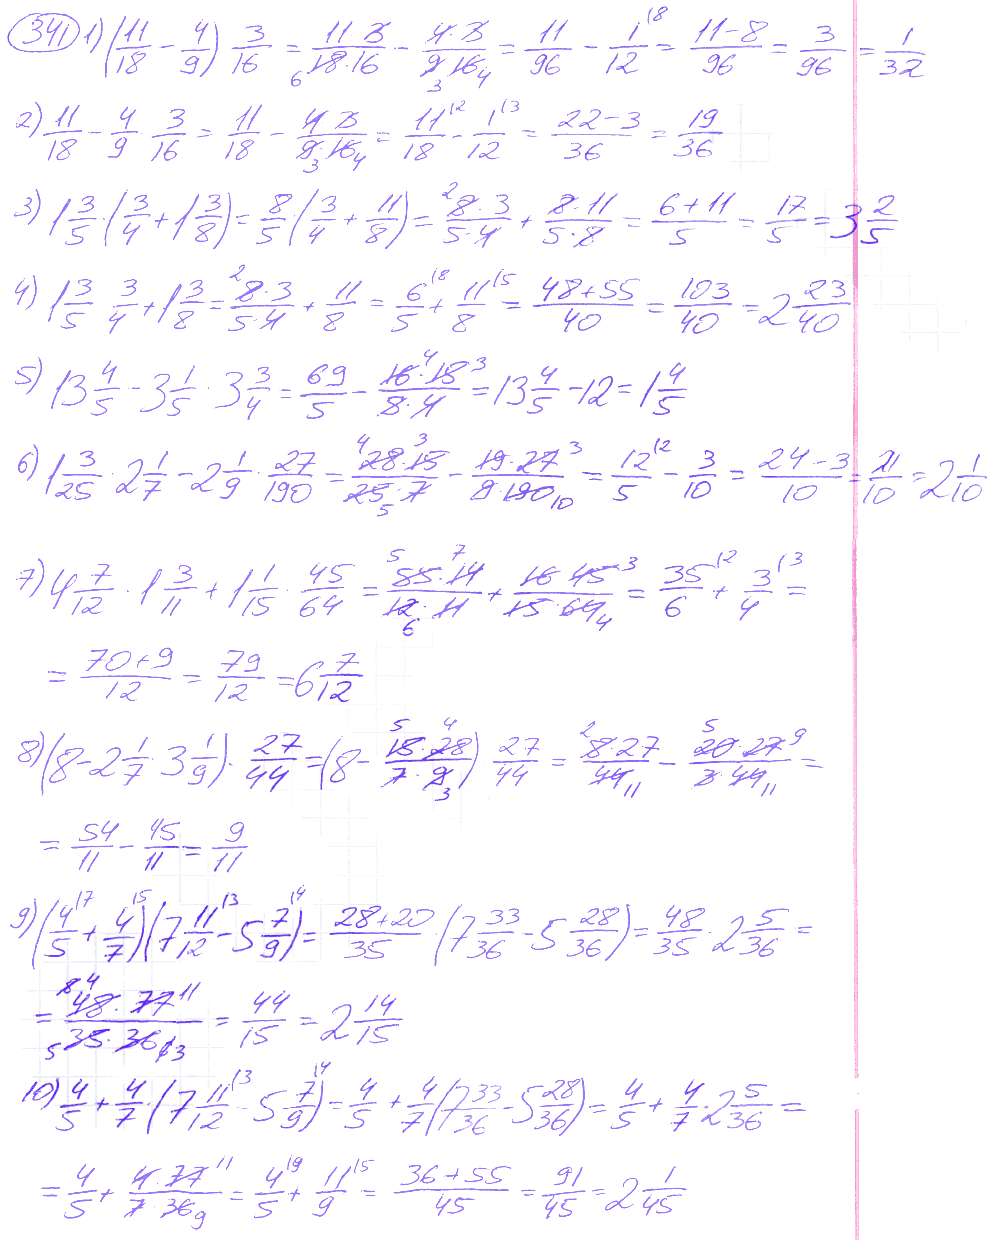 341 1) (11/18 - 4/9) 3/16 = 11·3/18·16 - 4·3/9·16 = 11/96 - 1/12 = 11-8/96 = 3/96 = 1/32
2) 11/18 - 4/9 · 3/16 = 11/18 - 4·3/9·16 = 11/18 - 1/12 = 22-3/36 = 19/36
3) 1 3/5 · (3/4 + 1 3/8) = 8/5 (3/4 + 11/8) = 8·3/5·4 + 8·11/5·8 = 6+11/5 = 17/5 = 3 2/5
4) 1 3/5 · 3/4 + 1 3/8 = 8·3/5·4 + 11/8 = 6/5 + 11/8 = 48+55/40 = 103/40 = 2 23/40
5) 13 4/5 - 3 1/5 · 3 3/4 = 69/5 - 16·15/5·4 = 13 4/5 - 12 = 1 4/5
6) 1 3/25 · 2 1/7 - 2 1/9 · 27/190 = 28·15/25·7 - 19·27/9·190 = 12/5 - 3/10 = 24-3/10 = 21/10 = 2 1/10
7) 4 7/12 · 1 3/11 + 1 1/15 · 45/64 = 55·14/12·11 + 16·45/15·64 = 35/6 + 3/4 =
= 70+9/12 = 79/12 = 6 7/12
8) (8 - 2 1/7 · 3 1/9) · 27/44 = (8 - 15·28/7·9) 27/44 = 8·27/44 - 20·27/3·44 =
= 54/11 - 45/11 = 9/11
9) (4/5 + 4/7)(7 11/12 - 5 7/9) = 28+20/35 · (7 33/36 - 5 28/36) = 48/35 · 2 5/36 =
= 48·77/35·36 = 44/15 = 2 14/15
10) 4/5 + 4/7 · (7 11/12 - 5 7/9) = 4/5 + 4/7 (7 33/36 - 5 28/36) = 4/5 + 4/7 · 2 5/36 =
= 4/5 + 4·77/7·36 = 4/5 + 11/9 = 36+55/45 = 91/45 = 2 1/45